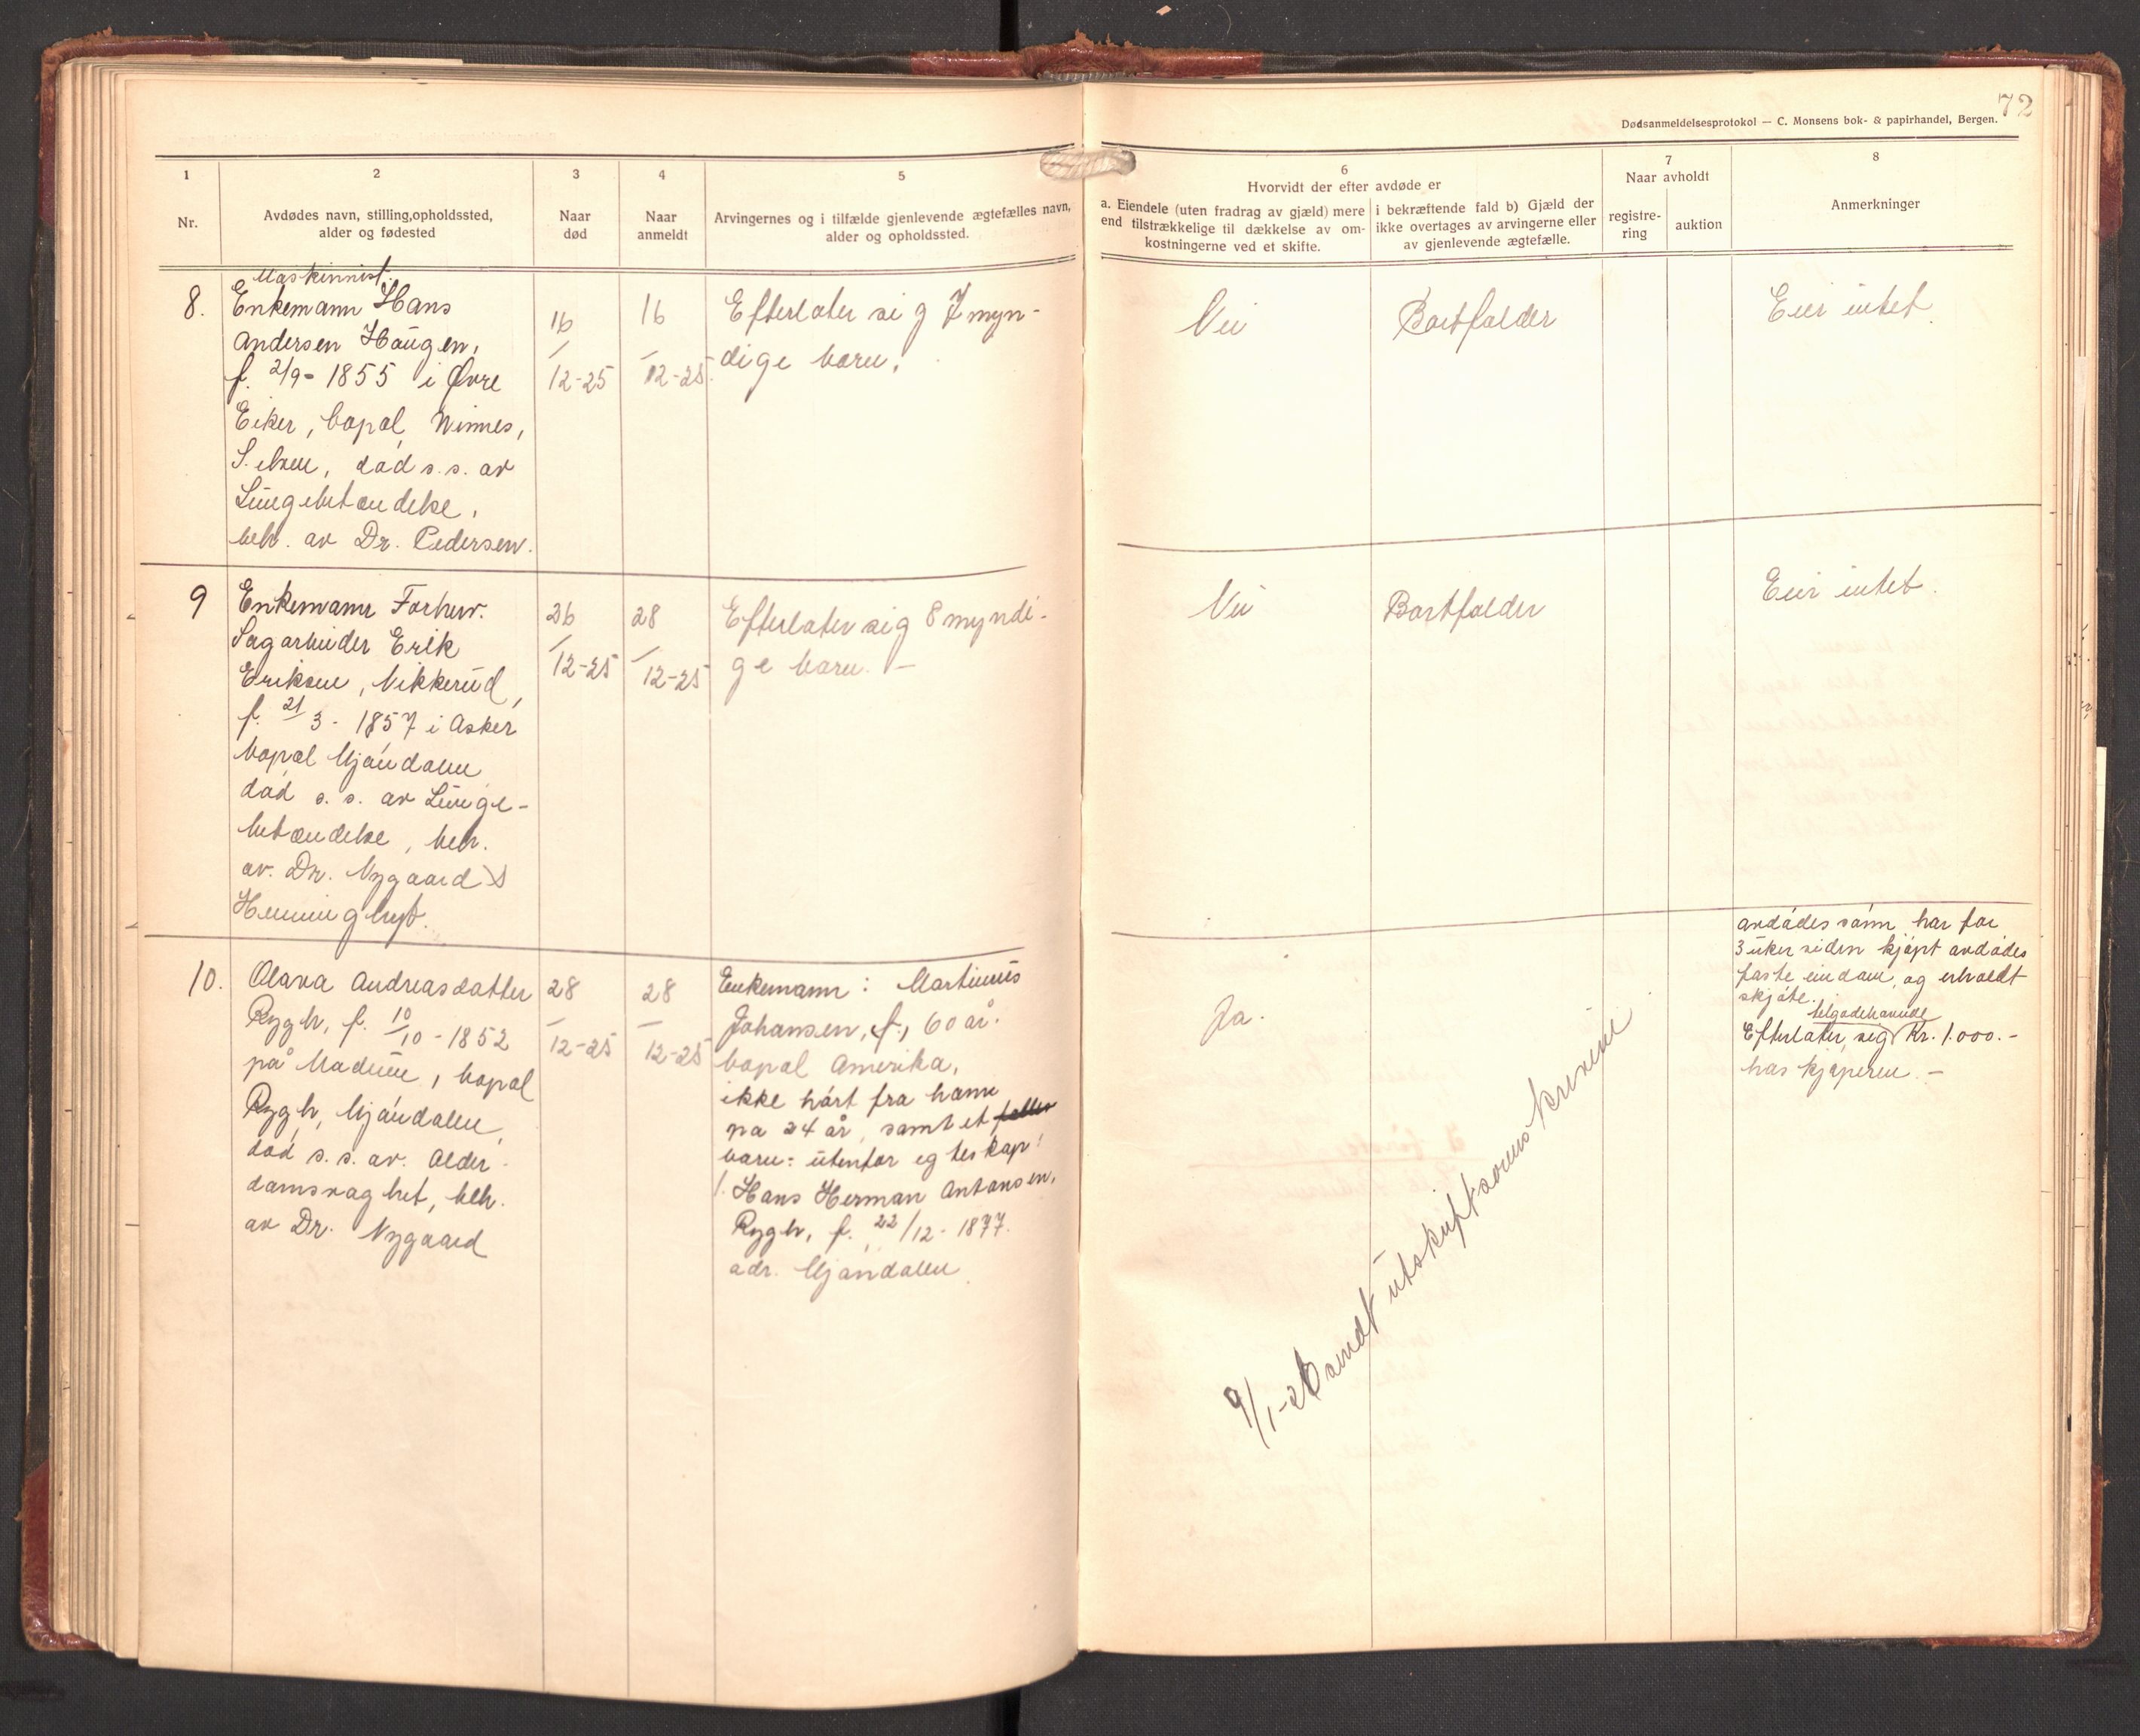 72
Dødsanmeldelsesprotokol — C. Monsens bok- & papirhandel, Bergen.
1
Nr.
2
Avdødes navn, stilling,opholdssted,
alder og fødested
3
Naar
død
4
Naar
anmeldt
5
Arvingernes og i tilfælde gjenlevende ægtefælles navn,
alder og opholdssted.
6
Hvorvidt der efter avdøde er
a. Eiendele (uten fradrag av gjæld) mere
end tilstrækkelige til dækkelse av om-
kostningerne ved et skifte.
i bekræftende fald b) Gjæld der
ikke overtages av arvingerne eller
av gjenlevende ægtefælle.
7
Naar avholdt
registre-
ring
auktion
8
Anmerkninger
8.
Maskinnist.
Enkemann Hans
Andersen Haugen,
f. 2/9- 1855 i Øvre
Eiker, bopæl Winnes,
S. elven, død s.s. av
Lungebetændelse,
beh. av Dr. Pedersen.
16
/
12-25
16
/
12-25.
Efterlater sig 7 myn-
dige barn.
Nei
Bortfalder
Eier intet.
9
Enkemann Forhenv.
Sagarbeider Erik
Eriksen, Nikkerud,
f. 21/3 - 1857 i Asker
bopæl Mjøndalen
død s.s. av Lunge-
betændelse, beh.
av. Dr. Nygaard
26
/
12-25
28
/
12-25
Efterlater sig 8 myndi-
ge barn. —
Nei
Bortfalder
Eier intet.
10.
Olava Andreasdatter
Rygh, f. 10/10 - 1852
på Modum, bopæl
Rygh, Mjøndalen,
død s.s. av. Alder-
domsvaghet, beh.
av Dr. Nygaard
28
/
12-25
28
/
12-25
Enkemann: Martinus
Johansen, f., 60 år.
bopæl Amerika,
ikke hørt fra ham
på 24 år, samt et felles
barn: utenfor egteskap:
1. Hans Herman Antonsen,
Rygh, f. 22/12 - 1877.
adr. Mjøndalen
Ja.
9/1-26 sendt utskrift
avdødes sønn har for
3 uker siden kjøpt avdødes
faste eiendom, og erholdt
skjøte.
tilgodehavende
Efterlater sig Kr. 1.000.-
hos kjøperen. —